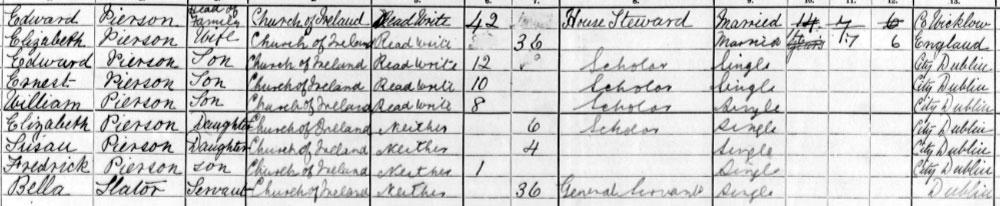 Edward Pierson Head of Family Church of Ireland Read Write 42 House Steward Married 14 7 6 Co Wicklow
Elizabeth Pierson Wife Church of Ireland Read write 36 Married 17 6 England
Edward Pierson Son Church of Ireland Read Write 12 Scholar Single City Dublin
Ernest Pierson Son Church of Ireland Read Write 10 Scholar Single City Dublin
William Pierson Son Church of Ireland Read Write 8 Scholar Single City Dublin
Elizabeth Pierson Daughter Church of Ireland Neither 6 Scholar Single City Dublin
Susan Pierson Daughter Church of Ireland Neither 4 Single City Dublin
Fredrick Pierson Son Church of Ireland Neither 1 Single City Dublin
Bella Slator Servant Church of Ireland Neither 36 General Servant Single Dublin